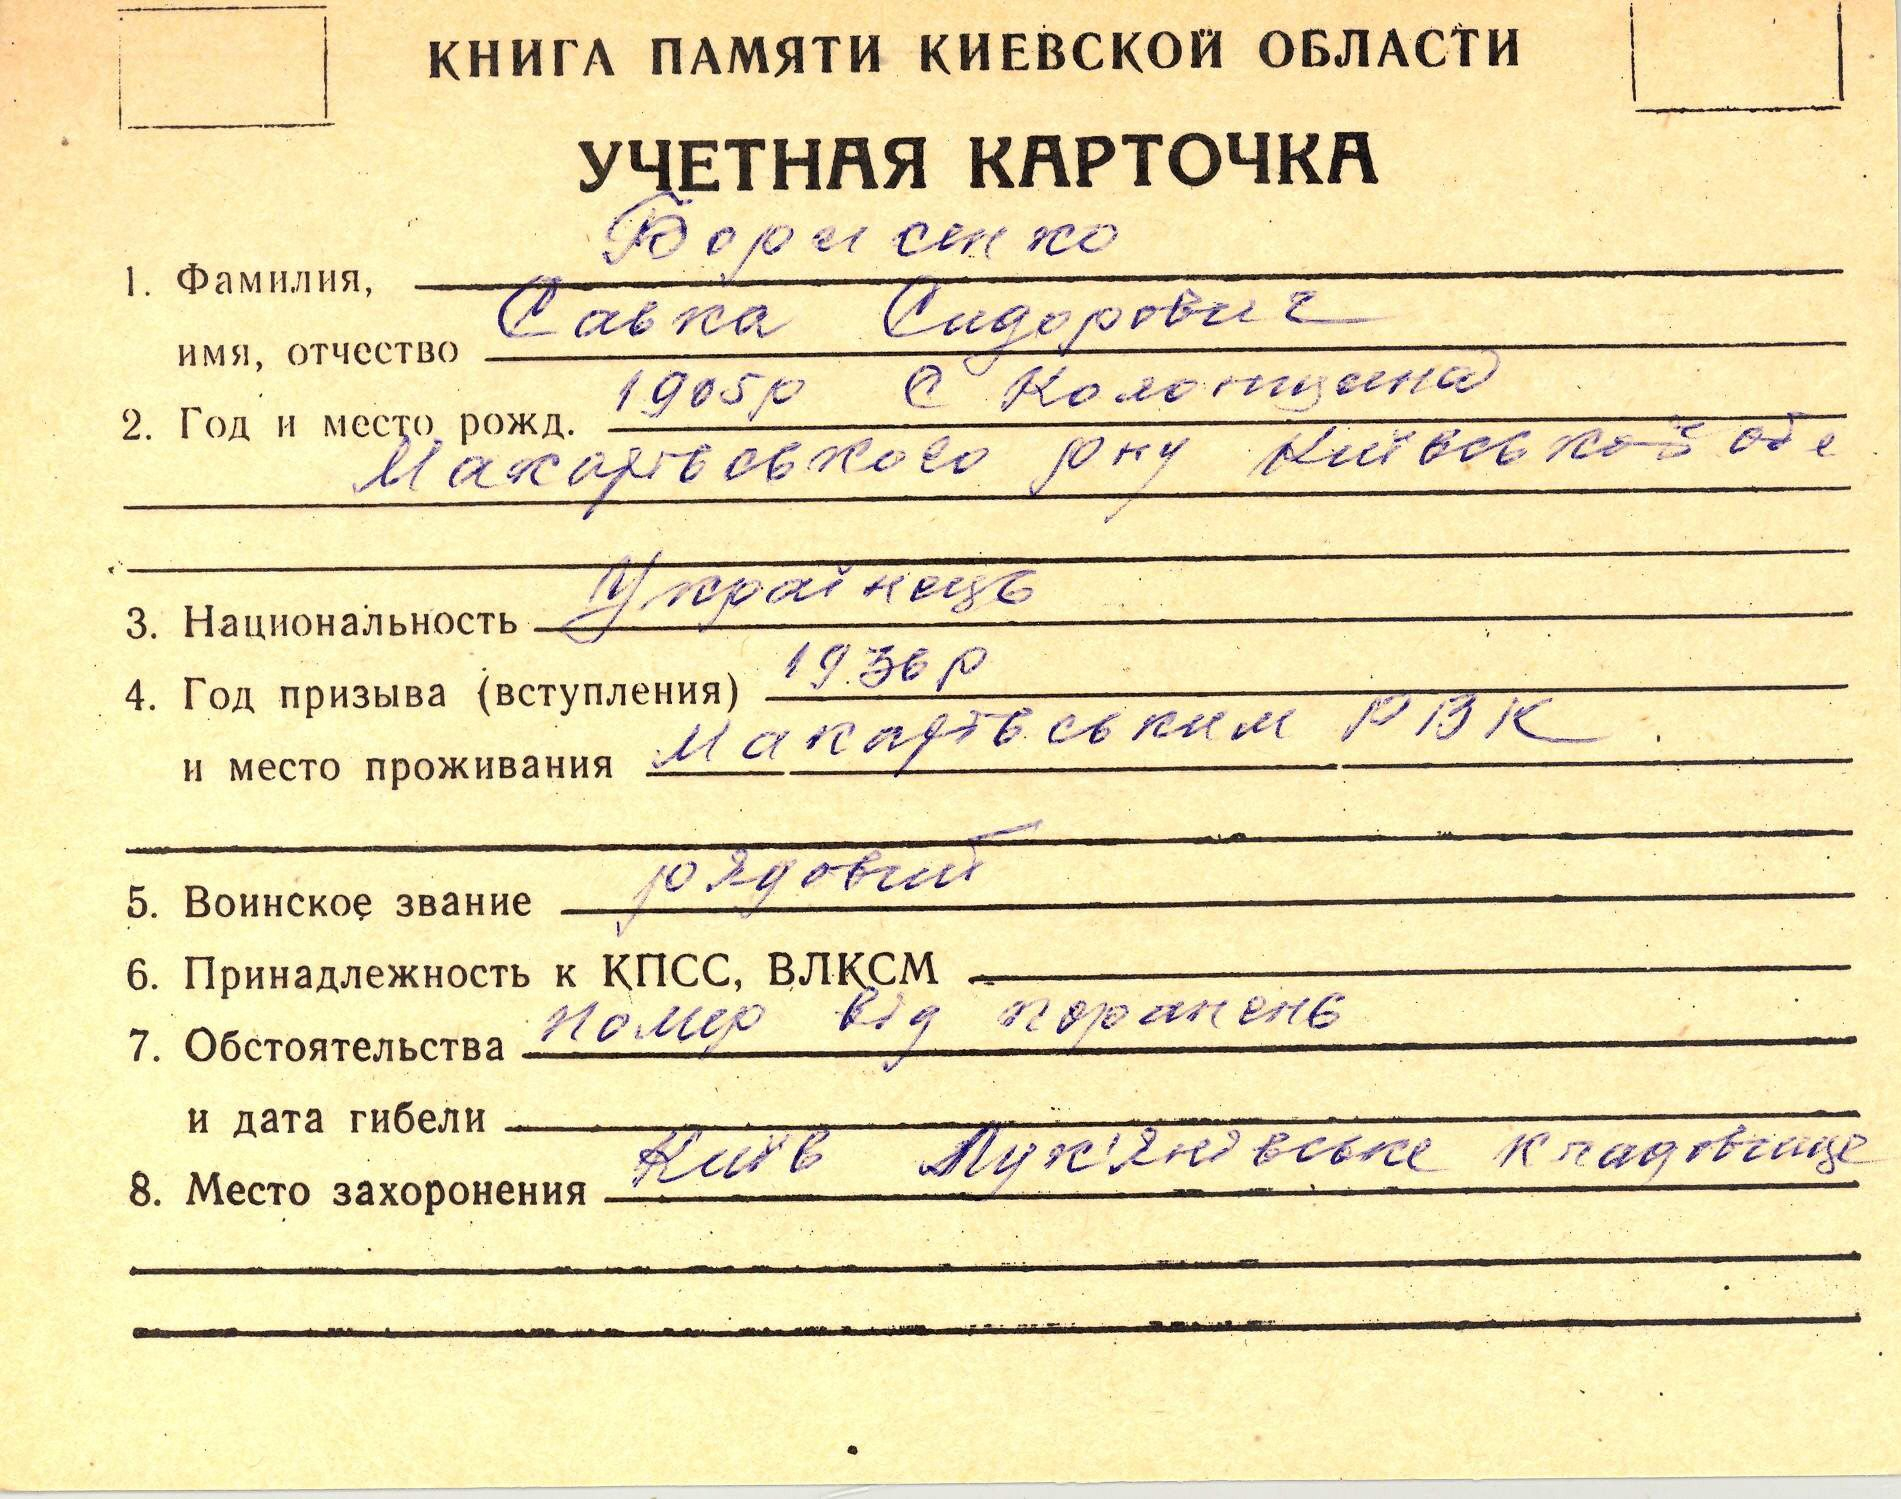 КНИГА ПАМЯТИ КИЕВСКОЙ ОБЛАСТИ
УЧЕТНАЯ КАРТОЧКА
1. Фамилия, Борисенко
имя, отчество Савка Сидорович
2. Год и место рожд. 1905р С Колонщина
Макарівського рну Київської обл
3. Национальность Українець
4. Год призыва (вступления) 1936р
и место проживания Макарівським РВК
5. Воинское звание рядовий
6. Принадлежность к КПСС, ВЛКСМ
7. Обстоятельства помер від поранень
и дата гибели
8. Место захоронения Київ Лук'янівське кладовище